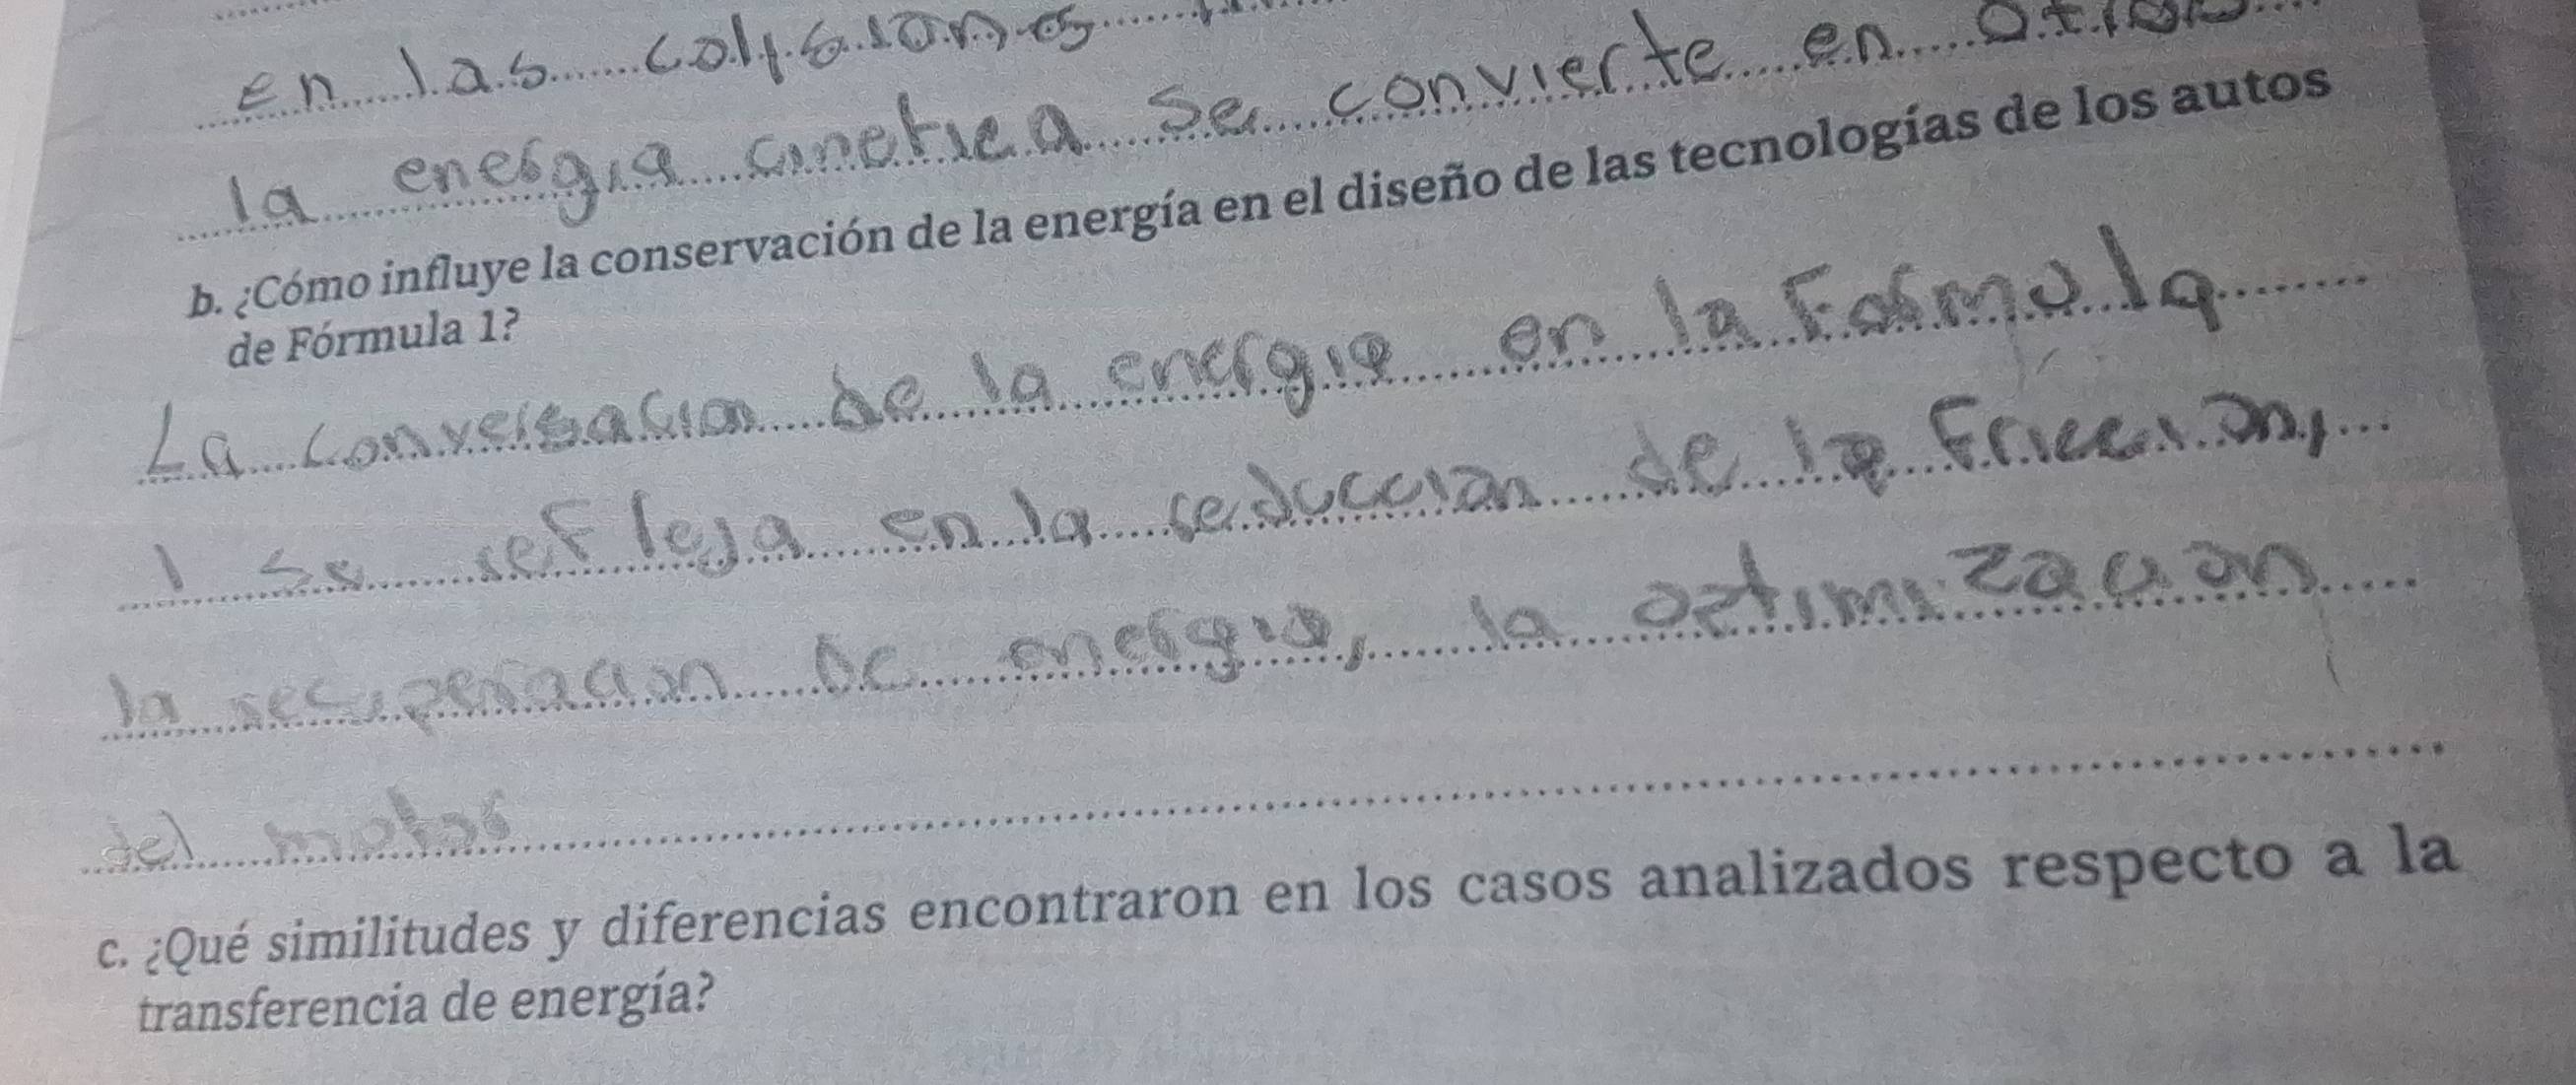 en las colisiones
la energia cinetica se convierte en otras
b. ¿Cómo influye la conservación de la energía en el diseño de las tecnologías de los autos
de Fórmula 1?
La conversacion de la energia en la Formula
1 se refleja en la reduccion de la friccion,
la recuperacion de energia, la optimizacion
del motor
c. ¿Qué similitudes y diferencias encontraron en los casos analizados respecto a la
transferencia de energía?